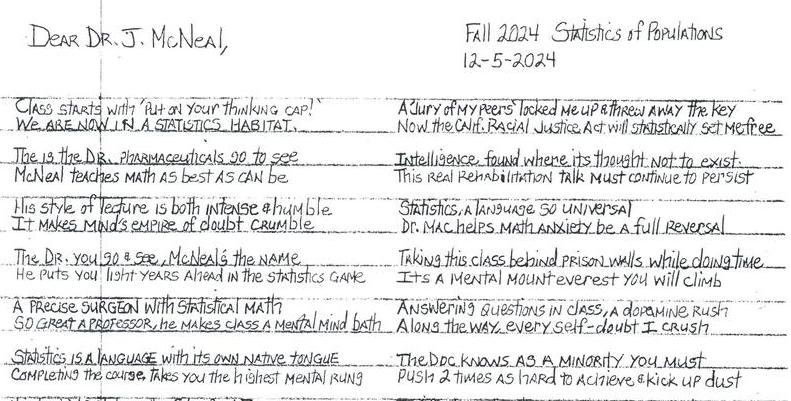 Dear Dr. J. McNeal,
Fall 2024 Statistics of Populations
12-5-2024
Class starts with 'Put on your thinking cap!'
We are now in a statistics habitat.
The is the Dr. pharmaceuticals go to see
McNeal teaches math as best as can be
His style of lecture is both intense & humble
It makes mind's empire of doubt crumble
The Dr. you go & see, McNeal's the name
He puts you light years ahead in the statistics game
A precise surgeon with statistical math
So great a professor, he makes class a mental mind bath
Statistics is a language with its own native tongue
Completing the course, takes you the highest mental rung
A 'Jury of my peers' locked me up & threw away the key
Now the Calif. Racial Justice Act will statistically set me free
Intelligence found where its thought not to exist.
This real rehabilitation talk must continue to persist
Statistics, a language so universal
Dr. Mac helps math anxiety be a full reversal
Taking this class behind prison walls while doing time
Its a mental Mount Everest you will climb
Answering questions in class, a dopamine rush
Along the way, every self-doubt I crush
The Doc knows as a minority you must
Push 2 times as hard to achieve & kick up dust